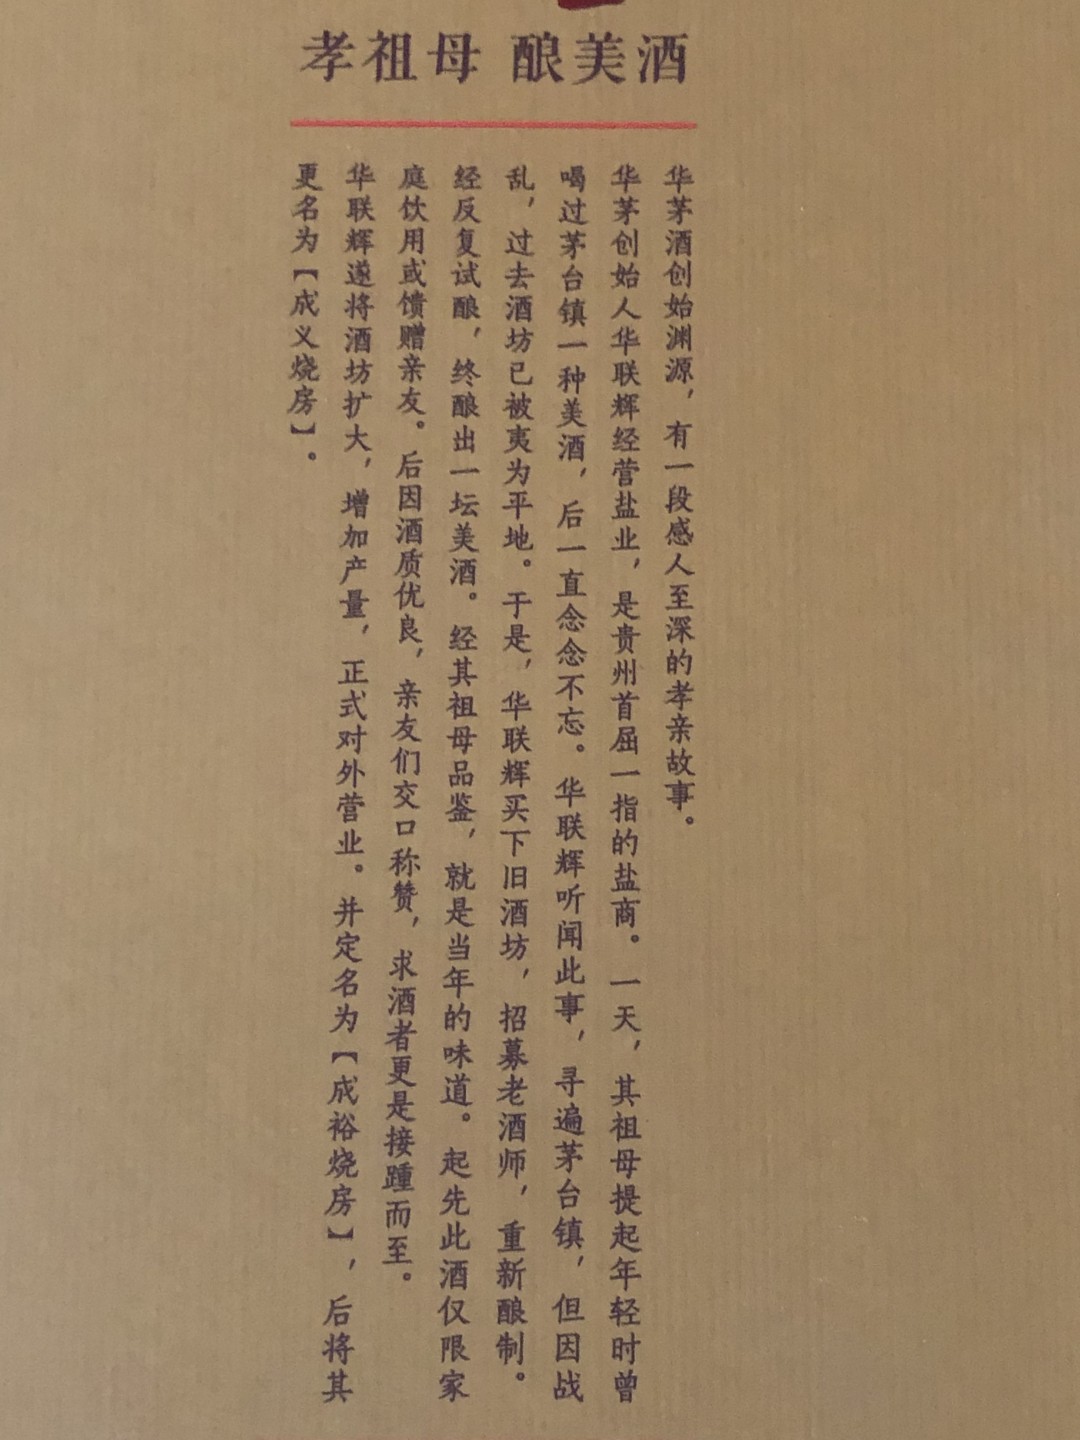 孝祖母 酿美酒
华茅酒创始渊源，有一段感人至深的孝亲故事。
华茅创始人华联辉经营盐业，是贵州首屈一指的盐商。一天，其祖母提起年轻时曾
喝过茅台镇一种美酒，后一直念念不忘。华联辉听闻此事，寻遍茅台镇，但因战
乱，过去酒坊已被夷为平地。于是，华联辉买下旧酒坊，招募老酒师，重新酿制。
经反复试酿，终酿出一坛美酒。经其祖母品鉴，就是当年的味道。起先此酒仅限家
庭饮用或馈赠亲友。后因酒质优良，亲友们交口称赞，求酒者更是接踵而至。
华联辉遂将酒坊扩大，增加产量，正式对外营业。并定名为【成裕烧房】，后将其
更名为【成义烧房】。